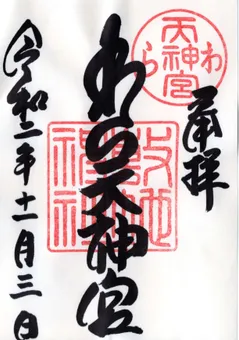 わら天神宮
奉拝
わら天神宮
令和二年十一月三日